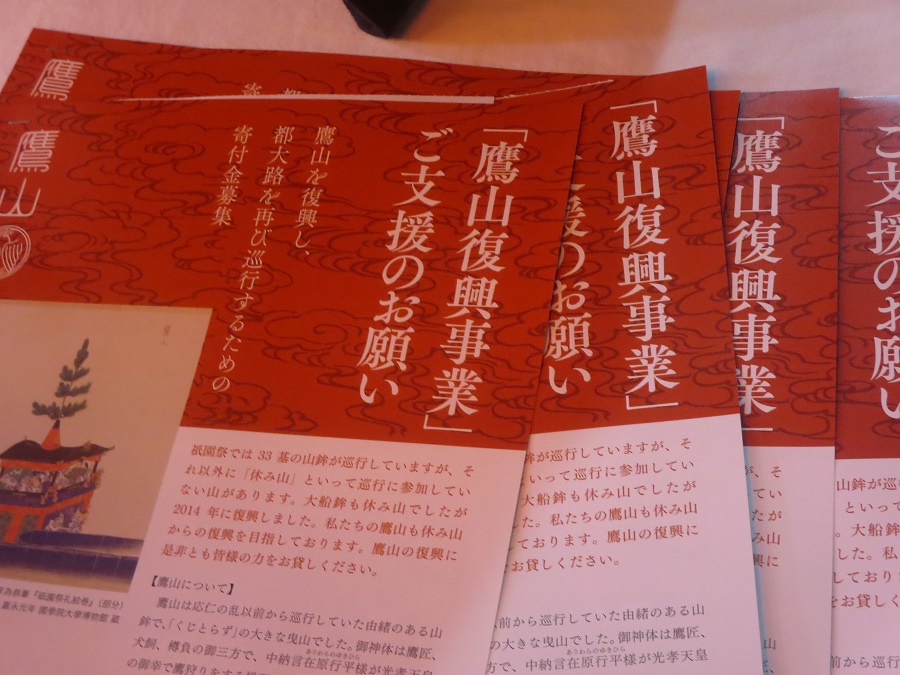 「鷹山復興事業」
ご支援のお願い
鷹山を復興し、
都大路を再び巡行するための
寄付金募集
鷹
鷹山
祇園祭では 33 基の山鉾が巡行していますが、そ
れ以外に「休み山」といって巡行に参加してい
ない山があります。大船鉾も休み山でしたが
2014 年に復興しました。私たちの鷹山も休み山
からの復興を目指しております。鷹山の復興に
是非とも皆様の力をお貸しください。
【鷹山について】
鷹山は応仁の乱以前から巡行していた由緒のある山
鉾で、「くじとらず」の大きな曳山でした。御神体は鷹匠、
犬飼、樽負の御三方で、中納言在原行平様が光孝天皇
の御幸で鷹狩りをする
『祇園祭礼絵巻』(部分)
嘉永元年 國學院大學博物館 蔵
「鷹山復興事業」
援のお願い
鉾が巡行していますが、そ
といって巡行に参加してい
大船鉾も休み山でしたが
した。私たちの鷹山も休み山
ております。鷹山の復興に
お貸しください。
から巡行していた由緒のある山
の大きな曳山でした。御神体は鷹匠、
方で、中納言在原行平様が光孝天皇
ありわらのゆきひら
「鷹山復興事業」
が、そ
してい
たが
休み山
興に
ご支援のお願い
山鉾が巡
といって
大船鉾
した。私
ており
お貸し
前から巡行